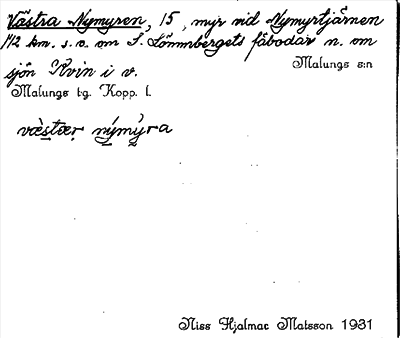 Västra Nymyren, 15, myr vid Nymyrtjärnen
1 1/2 km. s.v. om S. Lönnbergets fäbodar n. om
sjön Kvin i v.
Malungs s:n
Malungs tg. Kopp. l.
væ̀stær nýmýra
Niss Hjalmar Matsson 1931